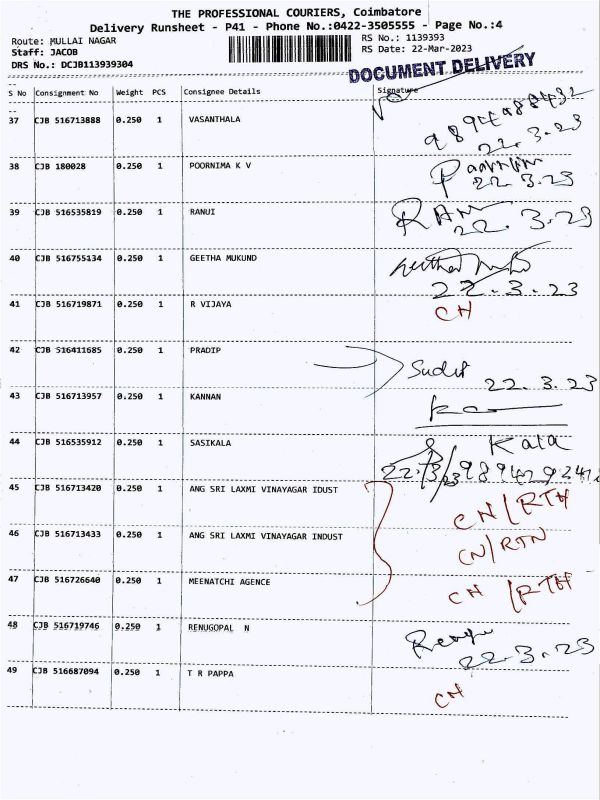 THE PROFESSIONAL COURIERS, Coimbatore
Delivery Runsheet - P41 - Phone No.:0422-3505555 - Page No.:4
Route: MULLAI NAGAR
RS No.: 1139393
Staff: JACOB
RS Date: 22-Mar-2023
DRS No.: DCJB113939304
DOCUMENT DELIVERY
S No Consignment No Weight PCS Consignee Details Signature
37 CJB 516713888 0.250 1 VASANTHALA
22.3.23
38 CJB 180028 0.250 1 POORNIMA K V
22 3.23
39 CJB 516535819 0.250 1 RANUI RAM
22. 3.23
40 CJB 516755134 0.250 1 GEETHA MUKUND
22.3.23
41 CJB 516719871 0.250 1 R VIJAYA CN
42 CJB 516411685 0.250 1 PRADIP
22.3.23
43 CJB 516713957 0.250 1 KANNAN
44 CJB 516535912 0.250 1 SASIKALA Kala
22/3/23
45 CJB 516713420 0.250 1 ANG SRI LAXMI VINAYAGAR IDUST CN/RTN
46 CJB 516713433 0.250 1 ANG SRI LAXMI VINAYAGAR INDUST CN/RTN
47 CJB 516726640 0.250 1 MEENATCHI AGENCE CN/RTN
48 CJB 516719746 0.250 1 RENUGOPAL N
22.3.23
49 CJB 516687094 0.250 1 T R PAPPA CN